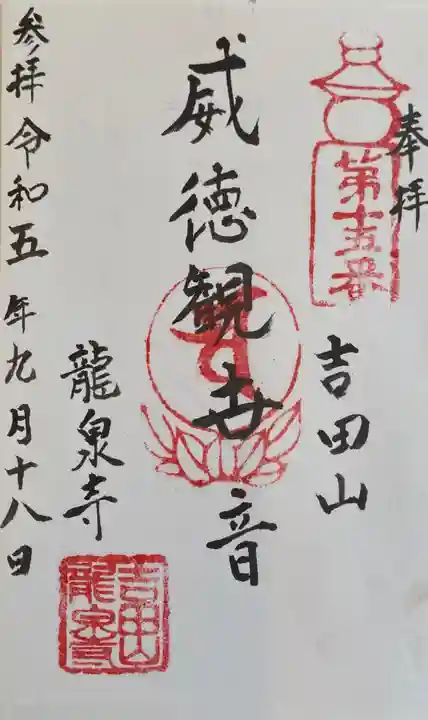 奉拝
第十五番
吉田山
威徳観世音
龍泉寺
吉田山
龍泉寺
参拝令和五年九月十八日